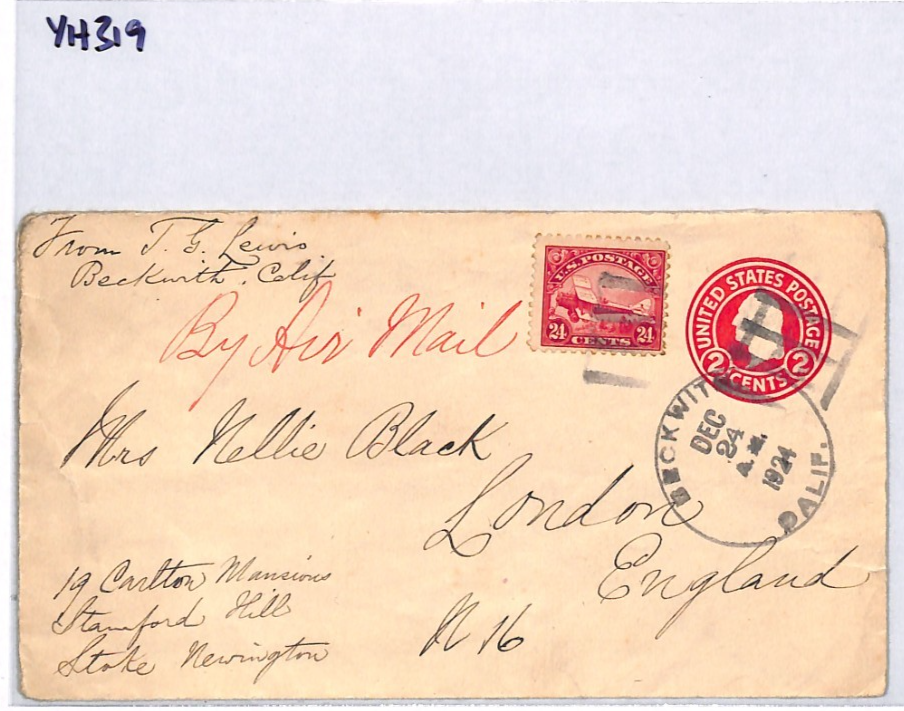 YH319
From T. G. Lewis
Beckwith, Calif
By Air Mail
U.S. POSTAGE
24 24
CENTS
UNITED STATES POSTAGE
2 CENTS 2
BECKWITH CALIF.
DEC
24
A.M.
1924
Mrs Nellie Black
London
England
N 16
19 Carlton Mansions
Stamford Hill
Stoke Newington